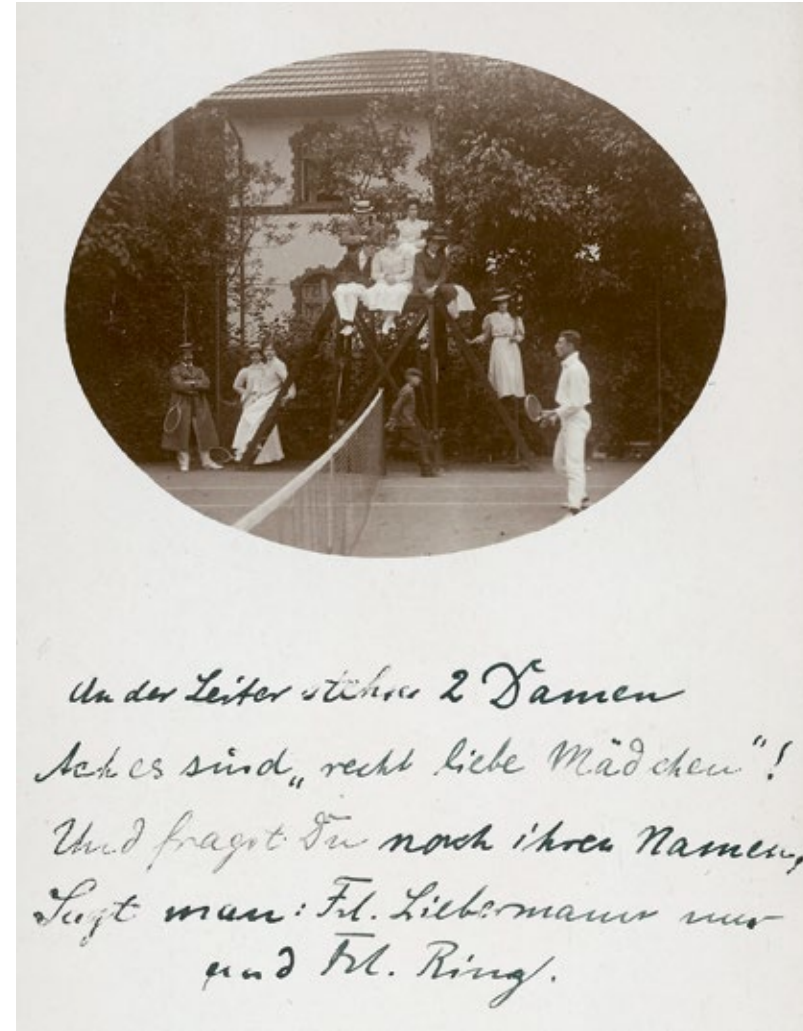 An der Leiter stehen 2 Damen
Ach es sind „recht liebe Mädchen“!
Und fragst Du nach ihren Namen,
Sagt man: Frl. Liebermann nur
und Frl. Ring.